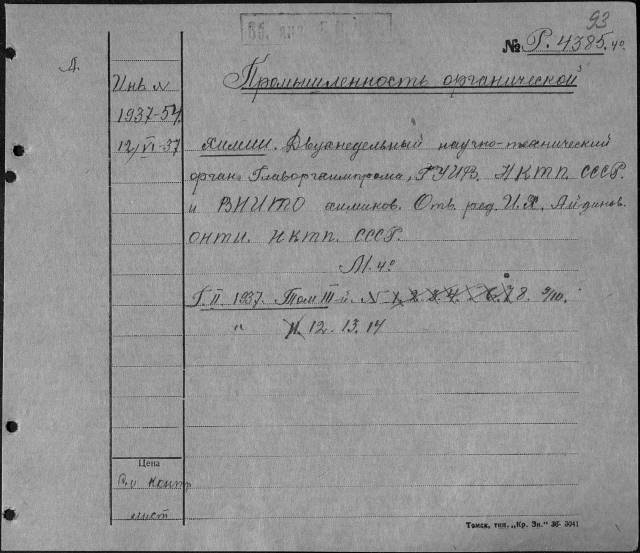 93
№ Р. 4385. 4º
Д.
Инв. N
1937-54.
12/VI-37
Промышленность органической
химии. Двухнедельный научно-технический
орган Главоргхимпрома, ГУИФ. НКТП. СССР.
и ВНИТО химиков. Отв. ред. И. Х. Айдинов.
ОНТИ. НКТП. СССР.
М. 4º
Г. II. 1937. Том III-й. N 1. 2. 3. 4. 6. 7 8. 9/10.
" 11. 12. 13. 14
Цена
контр.
лист
Томск, тип. „Кр. Зн." 36- 3041